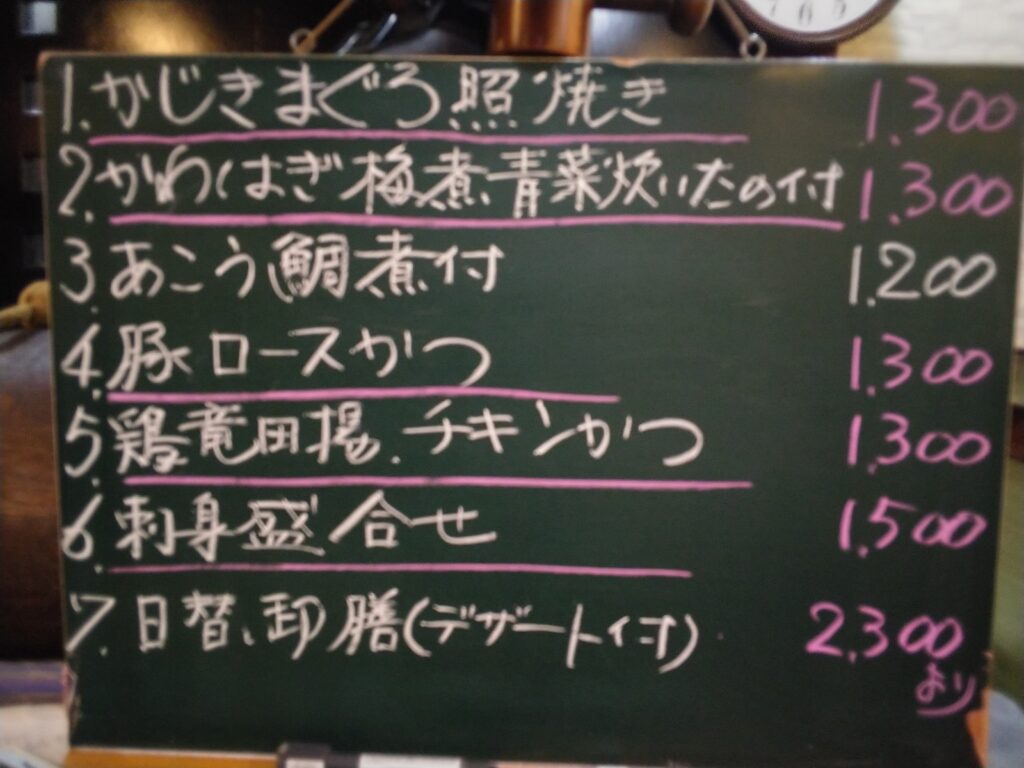 1.かじきまぐろ照焼き 1.300
2.かわはぎ梅煮.青菜炊いたの付 1.300
3.あこう鯛煮付 1.200
4.豚ロースかつ 1.300
5.鶏竜田揚.チキンかつ 1.300
6.刺身盛合せ 1.500
7.日替、卸膳(デザート付) 2.300
より
7 6 5